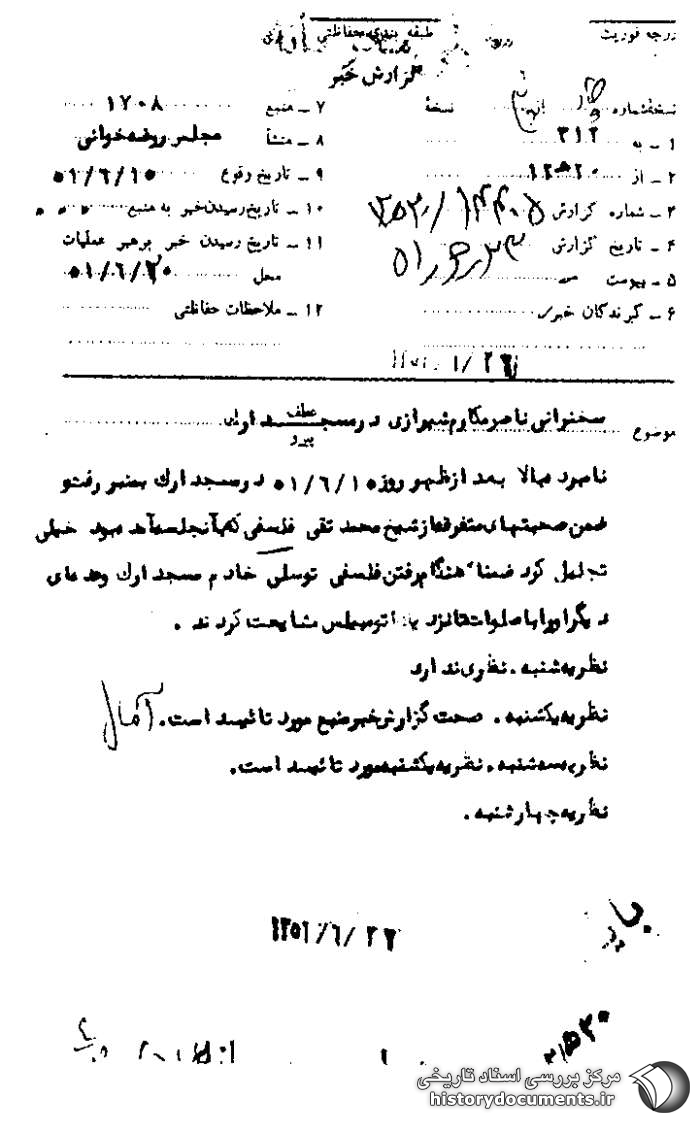 درجه فوریت
طبقه بندی حفاظتی
گزارش خبر
نسخهٔ شماره
از
نسخهٔ
۱ ــ به ۳۱۲
۲ ــ از ۱۲ه۲۰
۳ ــ شماره گزارش
۴ ــ تاریخ گزارش
۵ ــ پیوست
۶ ــ گیرندگان خبر
۷ ــ منبع ۱۷۰۸
۸ ــ منشأ مجلس روضه خوانی
۹ ــ تاریخ وقوع ۵۱/۶/۱۵
۱۰ ــ تاریخ رسیدن خبر به منبع
۱۱ ــ تاریخ رسیدن خبر برهبر عملیات
محل ۵۱/۶/۲۰
۱۲ ــ ملاحظات حفاظتی
موضوع سخنرانی ناصر مکارم شیرازی در مسجد ارک
عطف
پیرو
نامبرده بالا بعد از ظهر روز ۵۱/۶/۱۵ در مسجد ارک بمنبر رفت و
ضمن صحبتهای متفرقه از شیخ محمد تقی فلسفی که به آنجلسه آمده بود خیلی
تجلیل کرد ضمناً هنگام رفتن فلسفی توسلی خادم مسجد ارک وعده ای
دیگر او را با صلوات تا نزدیک اتومبیلش مشایعت کردند .
نظریه شنبه . نظری ندارد
نظریه یکشنبه . صحت گزارش خبر منبع مورد تائید است .
نظریه سه شنبه . نظریه یکشنبه مورد تائید است .
نظریه چهارشنبه .
۱۳۵۱/۶/۲۲
مرکز بررسی اسناد تاریخی
historydocuments.ir